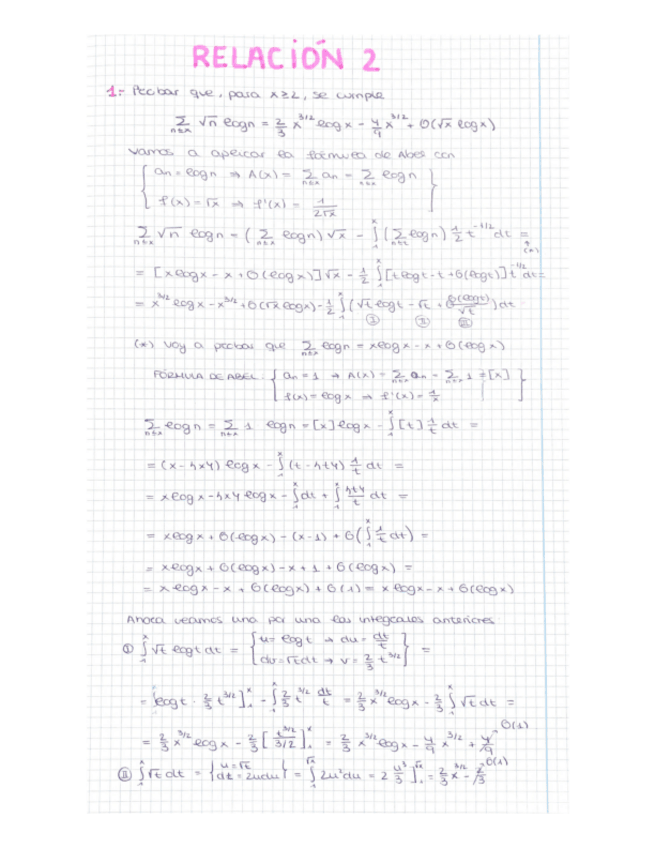 RELACIÓN 2
1.- Probar que, para x≥2, se cumple
∑_{n≤x} √n log n = 2/3 x^{3/2} log x - 4/9 x^{3/2} + O(√x log x)
Vamos a aplicar la fórmula de Abel con
{ a_n = log n ⇒ A(x) = ∑_{n≤x} a_n = ∑_{n≤x} log n
f(x) = √x ⇒ f'(x) = 1/(2√x) }
∑_{n≤x} √n log n = (∑_{n≤x} log n) √x - ∫_1^x (∑_{n≤t} log n) 1/2 t^{-1/2} dt = (*)
= [x log x - x + O(log x)] √x - 1/2 ∫_1^x [t log t - t + O(log t)] t^{-1/2} dt =
= x^{3/2} log x - x^{3/2} + O(√x log x) - 1/2 ∫_1^x (√t log t - √t + O(log t)/√t) dt
Ⓘ Ⓘ Ⓘ
(*) Voy a probar que ∑_{n≤x} log n = x log x - x + O(log x)
FÓRMULA DE ABEL: { a_n = 1 ⇒ A(x) = ∑_{n≤x} a_n = ∑_{n≤x} 1 = [x]
f(x) = log x ⇒ f'(x) = 1/x }
∑_{n≤x} log n = ∑_{n≤x} 1 log n = [x] log x - ∫_1^x [t] 1/t dt =
= (x - {x}) log x - ∫_1^x (t - {t}) 1/t dt =
= x log x - {x} log x - ∫_1^x dt + ∫_1^x {t}/t dt =
= x log x + O(log x) - (x-1) + O(∫_1^x 1/t dt) =
= x log x + O(log x) - x + 1 + O(log x) =
= x log x - x + O(log x) + O(1) = x log x - x + O(log x)
Ahora veamos una por una las integrales anteriores
Ⓘ ∫_1^x √t log t dt = { u = log t → du = dt/t
dv = √t dt → v = 2/3 t^{3/2} } =
= log t · 2/3 t^{3/2} ]_1^x - ∫_1^x 2/3 t^{3/2} dt/t = 2/3 x^{3/2} log x - 2/3 ∫_1^x √t dt =
= 2/3 x^{3/2} log x - 2/3 [ t^{3/2}/(3/2) ]_1^x = 2/3 x^{3/2} log x - 4/9 x^{3/2} + 4/9 O(1)
Ⓘ ∫_1^x √t dt = { u = √t
dt = 2udu } = ∫_1^{√x} 2u² du = 2 u³/3 ]_1^{√x} = 2/3 x^{3/2} - 2/3 O(1)